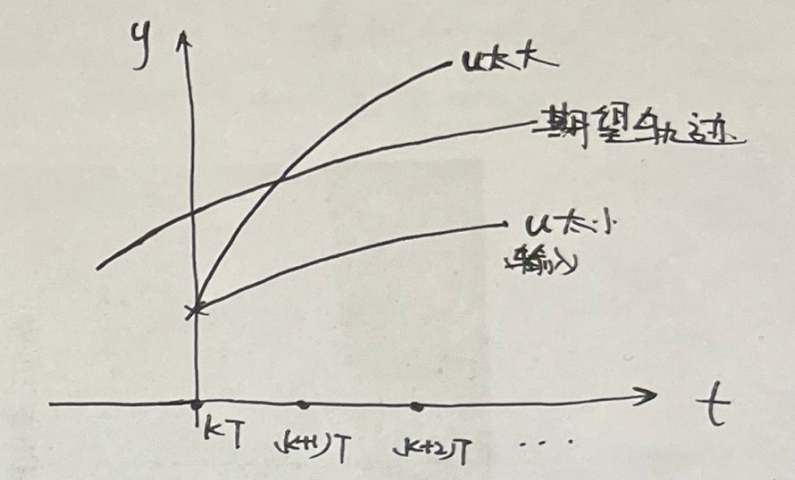 y
u太大
期望轨迹
u太小
输入
t
kT (k+1)T (k+2)T ...